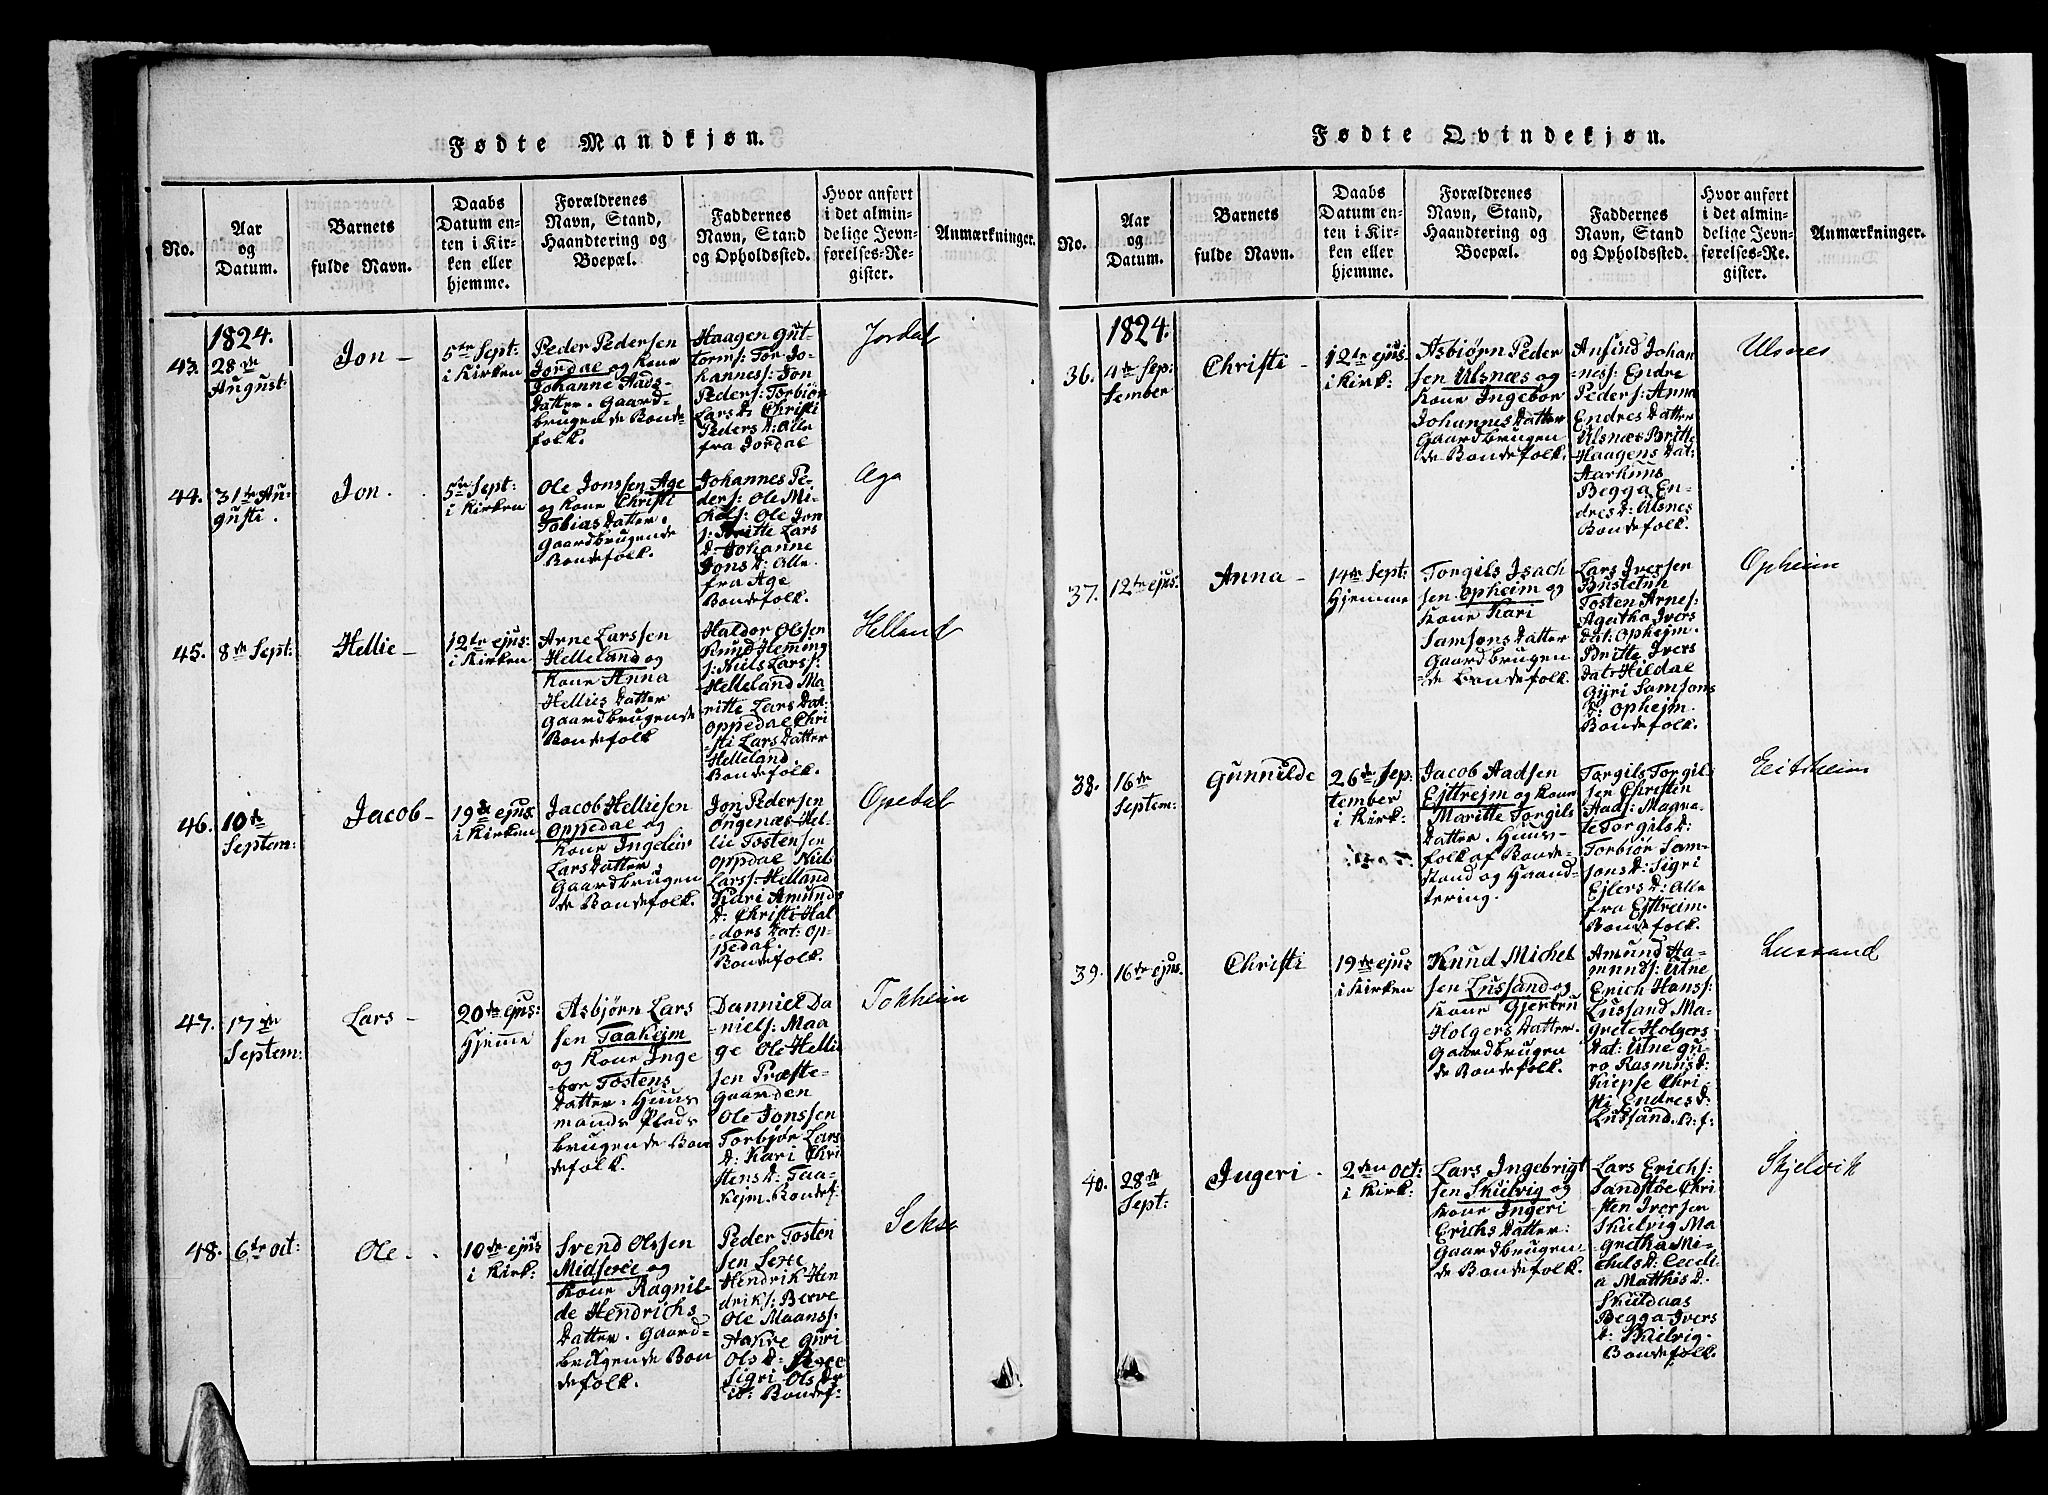 Fødte Mandkjøn.
No.
Aar
og
Datum.
Barnets
fulde Navn.
Daabs
Datum en-
ten i Kir-
ken eller
hjemme.
Forældrenes
Navn, Stand,
Haandtering og
Boepæl.
Faddernes
Navn, Stand
og Opholdssted.
Hvor anført
i det almin-
delige Jevn-
førelses-Re-
gister.
Anmærkninger.
1824.
43.
28de
August:
Jon —
5te Sept:
i Kirken
Peder Pedersen
Jordal og Kone
Johanne Aads-
datter. Gaard-
brugende Bonde-
folk.
Haagen Gut-
torms: Tor Jo-
hanness: Jon
Peders: Torbiør
Lars D. Christi
Peders D: Alle
fra Jordal
Jordal
44.
31te Au-
gusti.
Jon.
5te Sept:
i Kirken
Ole Jonssen Age
og Kone Christi
Tobias Datter.
Gaardbrugende
Bondefolk.
Johannes Pe-
ders: Ole Mi-
chels: Ole Jon
s: Britte Lars
D: Johanne
Jons D: Alle
fra Age
Bondefolk.
Aga
45.
8de Sept:
Hellie —
12te ejus:
i Kirken
Arne Larssen
Helleland og
Kone Anna
Hellies Datter
Gaardbrugende
Bondefolk
Haldor Olssen
Knud Heming
s: Niels Larss:
Helleland Ma-
ritte Lars Dat:
Oppedal Chri
-sti Lars Datter
Helleland.
Bondefolk.
Helland
46.
10de
Septem:
Jacob —
19de ejus:
i Kirken
Jacob Helliesen
Oppedal og
Kone Ingeleiv
Lars Datter.
Gaardbrugen
de Bondefolk.
Jon Pedersen
Ongenæs Hel-
lie Tostensen
Oppdal Niels
Larss: Helland
Kari Amunds
D: Christi Hal
-dors Dat: Op-
pedal.
Bondefolk.
Opedal
47.
17de
Septem:
Lars —
20de ejus:
Hjemme
Asbjørn Lars
sen Taakejm
og Kone Inge
-bor Tostens
Datter. Huus
mands Plads
brugende Bon
defolk.
Danniel Da
niels: Maa
ge Ole Hellie
sen Præste-
gaarden
Ole Jonssen
Torbjør Lars
D: Kari Chri
stens D: Taa-
kejm. Bondef:
Tokheim
48.
6te Oct:
Ole —
10de ejus
i Kirk:
Svend Olssen
Midsexe og
Kone Ragnil
de Hendrichs
Datter. Gaard-
brugende Bon
defolk.
Peder Tosten
sen Sexe
Hendrik Hen
driks: Berve
Ole Maanss:
Aakre Guri
Ols D: Sexe
Sigri Ols Dr
ib: Bondef:
Sekse
Fødte Qvindekjøn.
No.
Aar
og
Datum.
Barnets
fulde Navn.
Daabs
Datum en-
ten i Kir-
ken eller
hjemme.
Forældrenes
Navn, Stand,
Haandtering og
Boepæl.
Faddernes
Navn, Stand
og Opholdssted.
Hvor anført
i det almin-
delige Jevn-
førelses-Re-
gister.
Anmærkninger.
1824.
36.
4de Sep:
tember
Christi —
12te ejus:
i Kirk:
Asbiørn Peder
sen Ulsnæs og
Kone Ingebor
Johannes Datter
Gaardbrugen
de Bondefolk.
Ansind Johan
-ness: Endre
Peders: Anna
Endres Datter
Ulsnæs Britte
Haagens Dat:
Aarhuus
Begga En-
dres D: Ulsnes
Bondefolk.
Ulsnes
37.
12te ejus:
Anna —
14de Sept:
Hjemme
Torgils Isach
sen Opheim og
Kone Kari
Samsons Datter
Gaardbrugen
-de Bondefolk.
Lars Iversen
Bustetun
Tosten Arnes:
Agatha Ivers
Dat: Opheim.
Britte Ivers
Datr Hildal
Gyri Samsons
D: Opheim.
Bondefolk.
Opheim
38.
16de
Septem:
Gunnilde
26de Sep:
tember
i Kirk:
Jacob Aadsen
Ejttrejm og Kone
Maritte Torgils
Datter. Huus-
folk af Bonde-
stand og Haand-
tering.
Torgils Torgil
sen Christen
Aads: Magna-
te Torgils D:
Torbiør Sam-
sons D: Sigri
Ejlers D: Alle
fra Ejttreim.
Bondefolk.
Eitrheim
39.
16de ejus.
Christi
19de ejus
i Kirken
Knud Michel
sen Lussand og
Kone Gjertru
Holgers Datter.
Gaardbrugen
de Bondefolk.
Amund Aa-
munds: Utne
Erich Hanss:
Lussand Ma-
grete Holgers
Dat: Utne Gu-
ro Rasmus D:
Kiepse Chri-
sti Endres D:
Lussand. B: f:
Lussand
40.
28de
Sept:
Ingeri —
2den Oct:
i Kirk:
Lars Ingebrigt
sen Skielvig og
Kone Ingeri
Erichs Datter:
Gaardbrugen-
de Bondefolk.
Lars Erichs:
Sandstøe Chri
sten Iversen
Skielvig Ma-
gretha Mi-
chels D: Cecili
a Matthis D.
Skutdaas
Begga Ivers
D: Skielvig.
Bondefolk.
Skjelvik